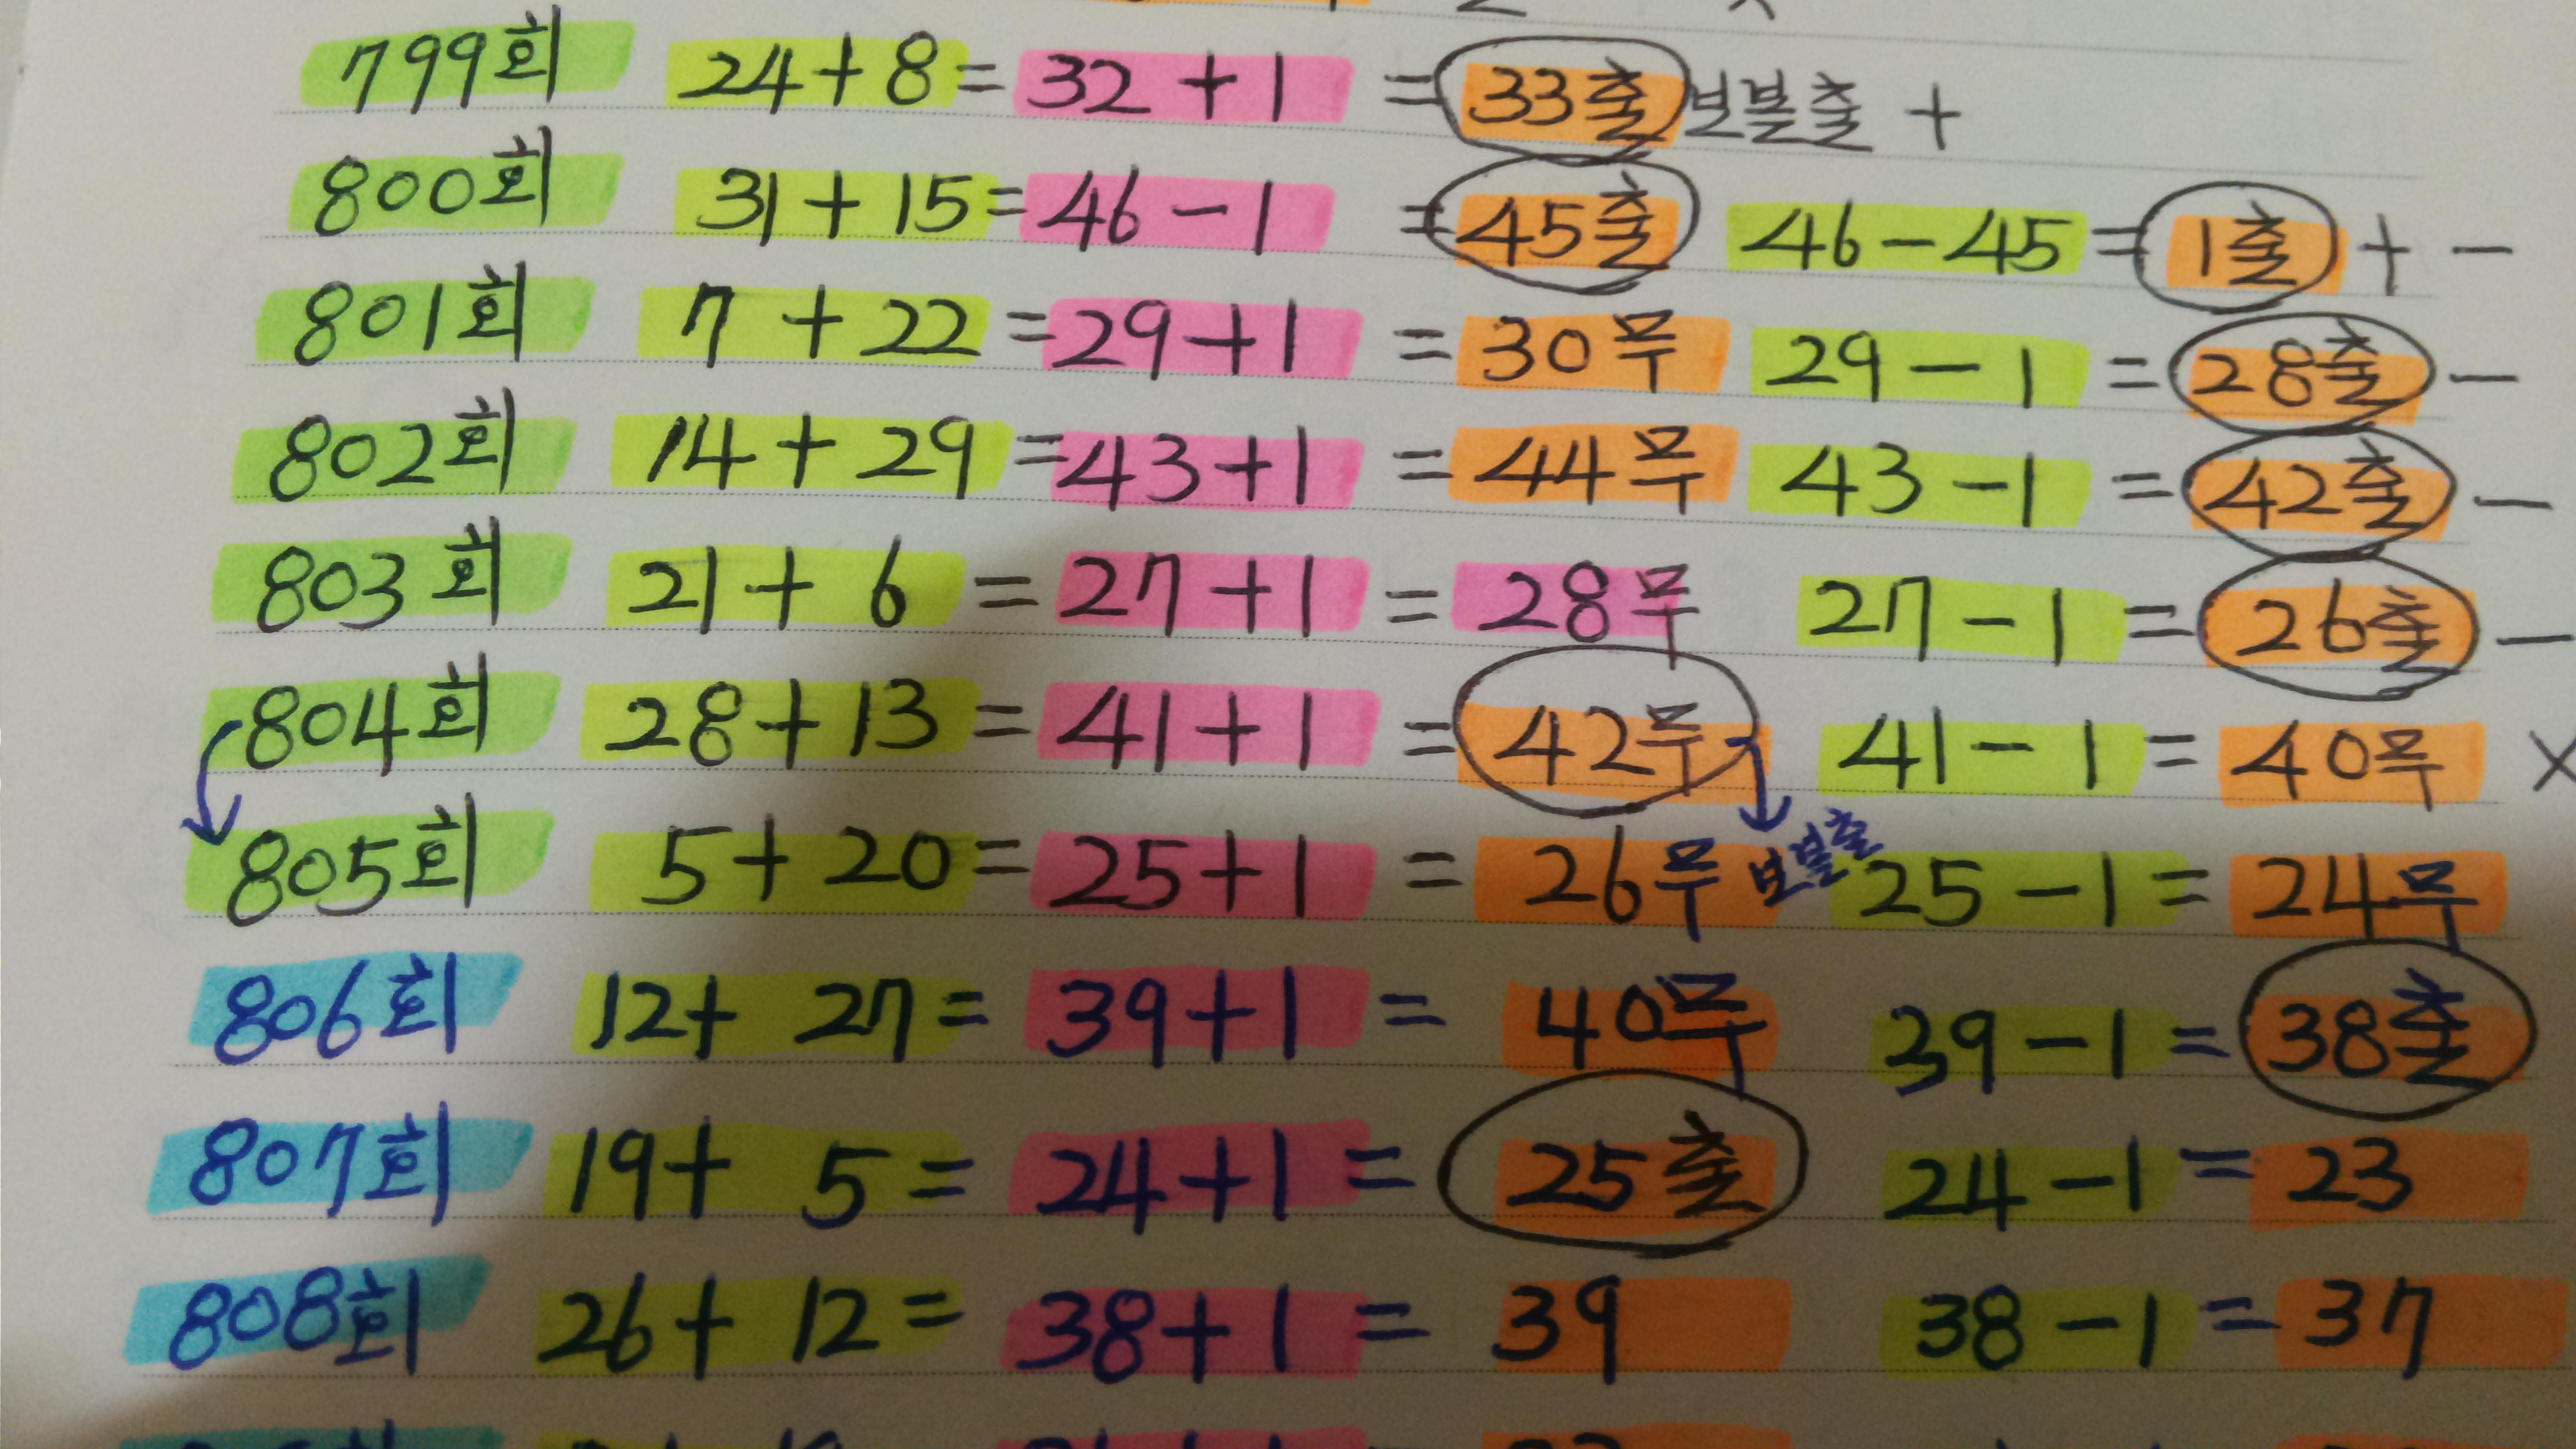 799회 24+8=32+1 =33출 보볼출 +
800회 31+15=46-1 =45출 46-45=1출 + -
801회 7+22=29+1 =30무 29-1=28출 -
802회 14+29=43+1 =44무 43-1=42출 -
803회 21+6=27+1=28무 27-1=26출 -
804회 28+13=41+1=42무 41-1=40무 ×
보볼출
805회 5+20=25+1=26무 25-1=24무
806회 12+27=39+1=40무 39-1=38출
807회 19+5=24+1=25출 24-1=23
808회 26+12=38+1=39 38-1=37